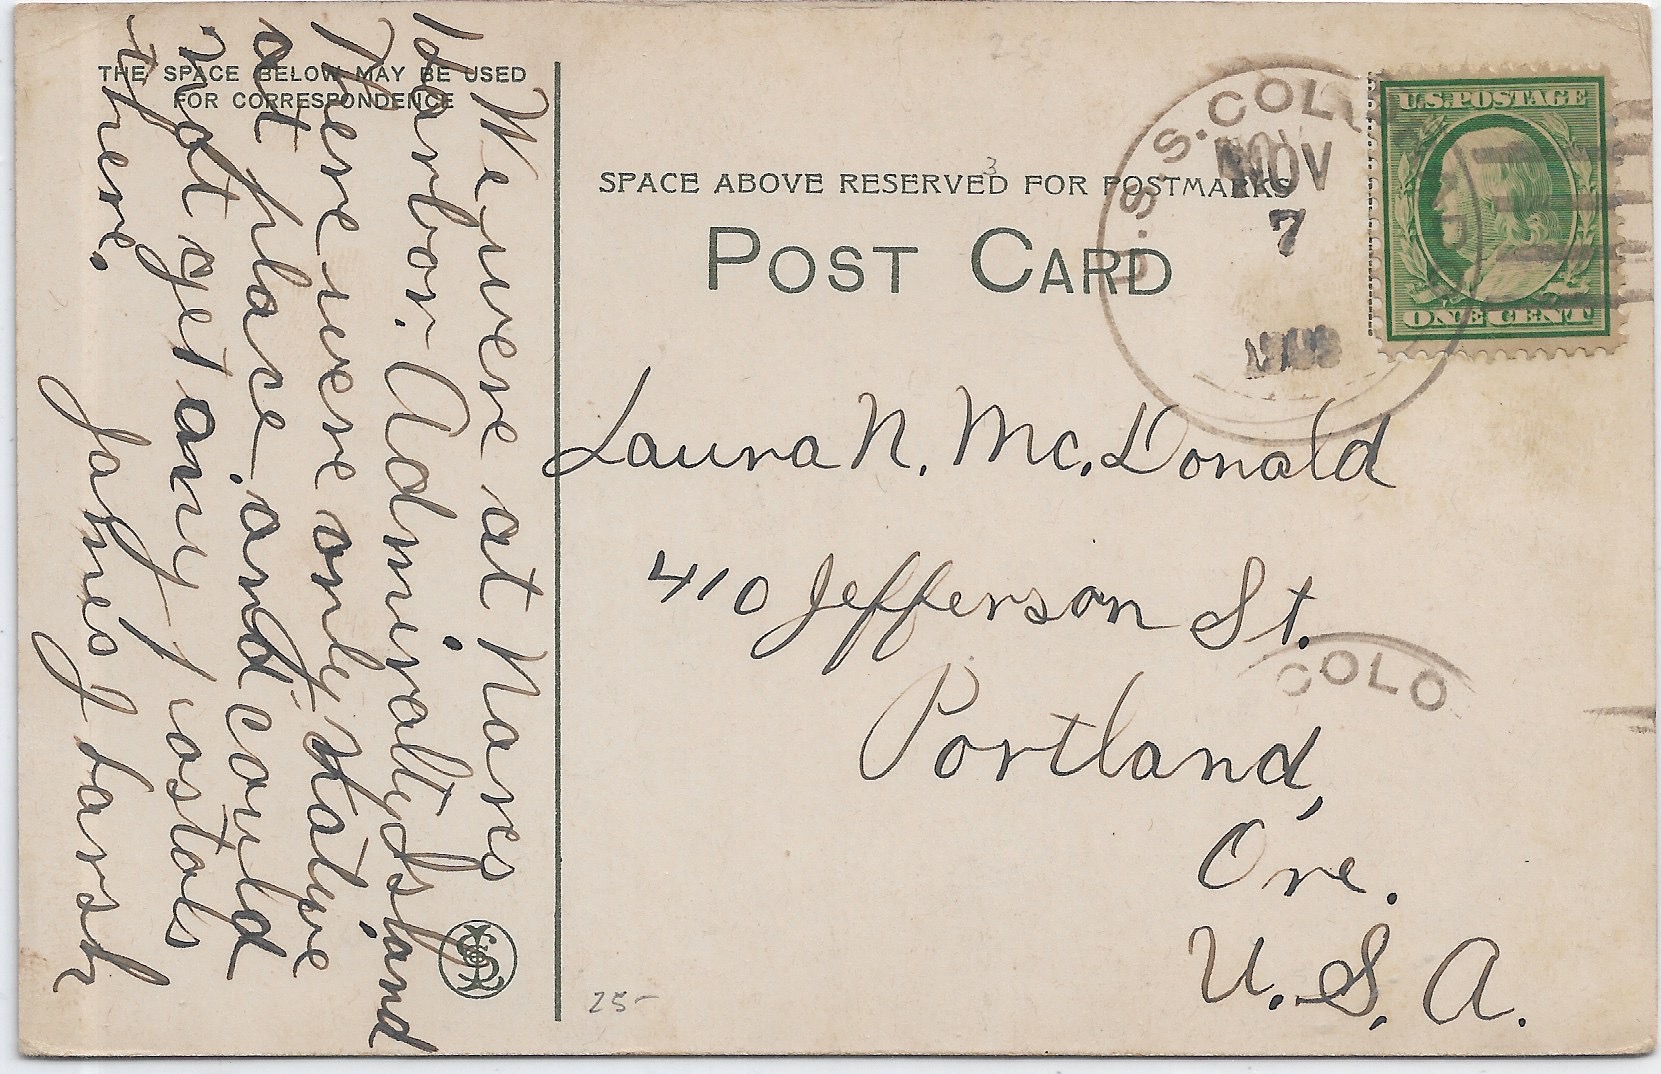 THE SPACE BELOW MAY BE USED
FOR CORRESPONDENCE
We were at Nares
Harbor. Admiralty Island
There were only Native
at place. and could
not get any Postals
there.
James J Larsh
SPACE ABOVE RESERVED FOR POSTMARKS
3
POST CARD
U.S.S. COLO
NOV
7
U.S. POSTAGE
ONE CENT
Laura N. McDonald
410 Jefferson St.
Portland,
Ore.
U.S.A.
COLO
25-